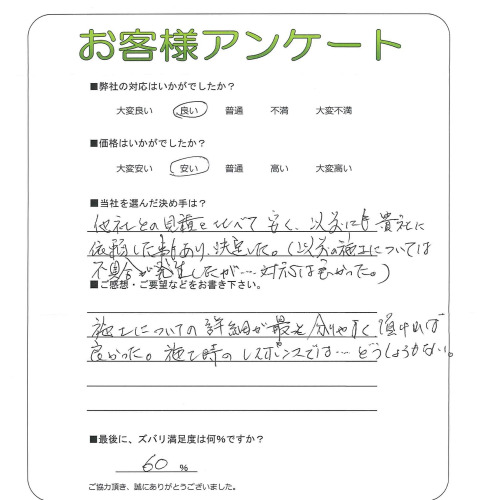 お客様アンケート
■弊社の対応はいかがでしたか？
大変良い 良い 普通 不満 大変不満
■価格はいかがでしたか？
大変安い 安い 普通 高い 大変高い
■当社を選んだ決め手は？
他社との見積と比べて安く、以前にも貴社に
依頼した事もあり、決定した。(以前の施工については
不具合が発生したが… 対応は良かった。)
■ご感想・ご要望などをお書き下さい。
施工についての詳細が 分りやすく頂ければ
良かった。施工時のレスポンスでは… どうしようもない。
■最後に、ズバリ満足度は何%ですか？
60 %
ご協力頂き、誠にありがとうございました。